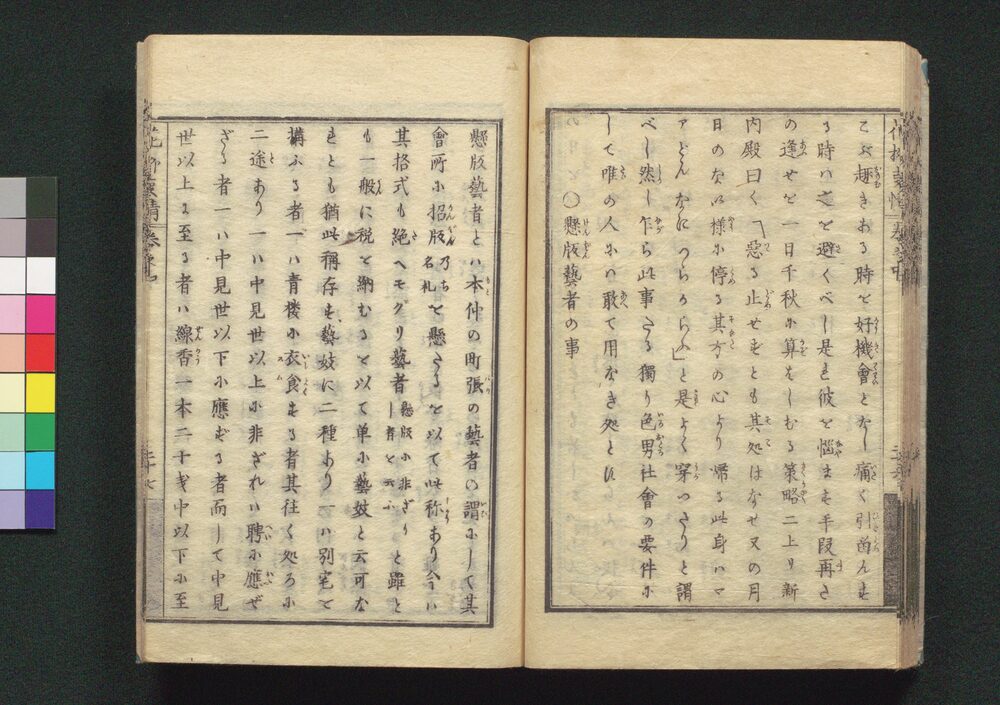 こぶ趣きある時を好機會となし痛く引酋んも
る時ハ之を避くべし是も彼を惱ます手段再さ
の逢せを一日千秋に算をしむる策略二上り新
内殿曰く「惡る止せずとも其処はなせ又の月
日のな以様に停る其方の心より帰る此身ハマ
アどんなにつらからん」と是よく穿つたりと謂
べし然し乍ら此事たる獨り色男社會の要件に
して唯の人にハ敢て用なき処とす
〇懸版藝者の事
懸版藝者とハ本仲の町張の藝者の謂にして其
會所に招版乃ち名札を懸たるを以て此称あり今ハ
其格式も絶へモグリ藝者懸版に非ざりし者を云ふと雖と
も一般に税を納むるを以て単に藝妓と云可な
れとも猶此稱存も藝妓に二種あり一ハ別宅を
構ふる者一ハ青楼に衣食する者其往く処ろに
二途あり一ハ中見世以上に非ざれハ聘に應ぜ
ざる者一ハ中見世以下に應ずる者而して中見
世以上に至る者ハ線香一本二十戋中以下に至